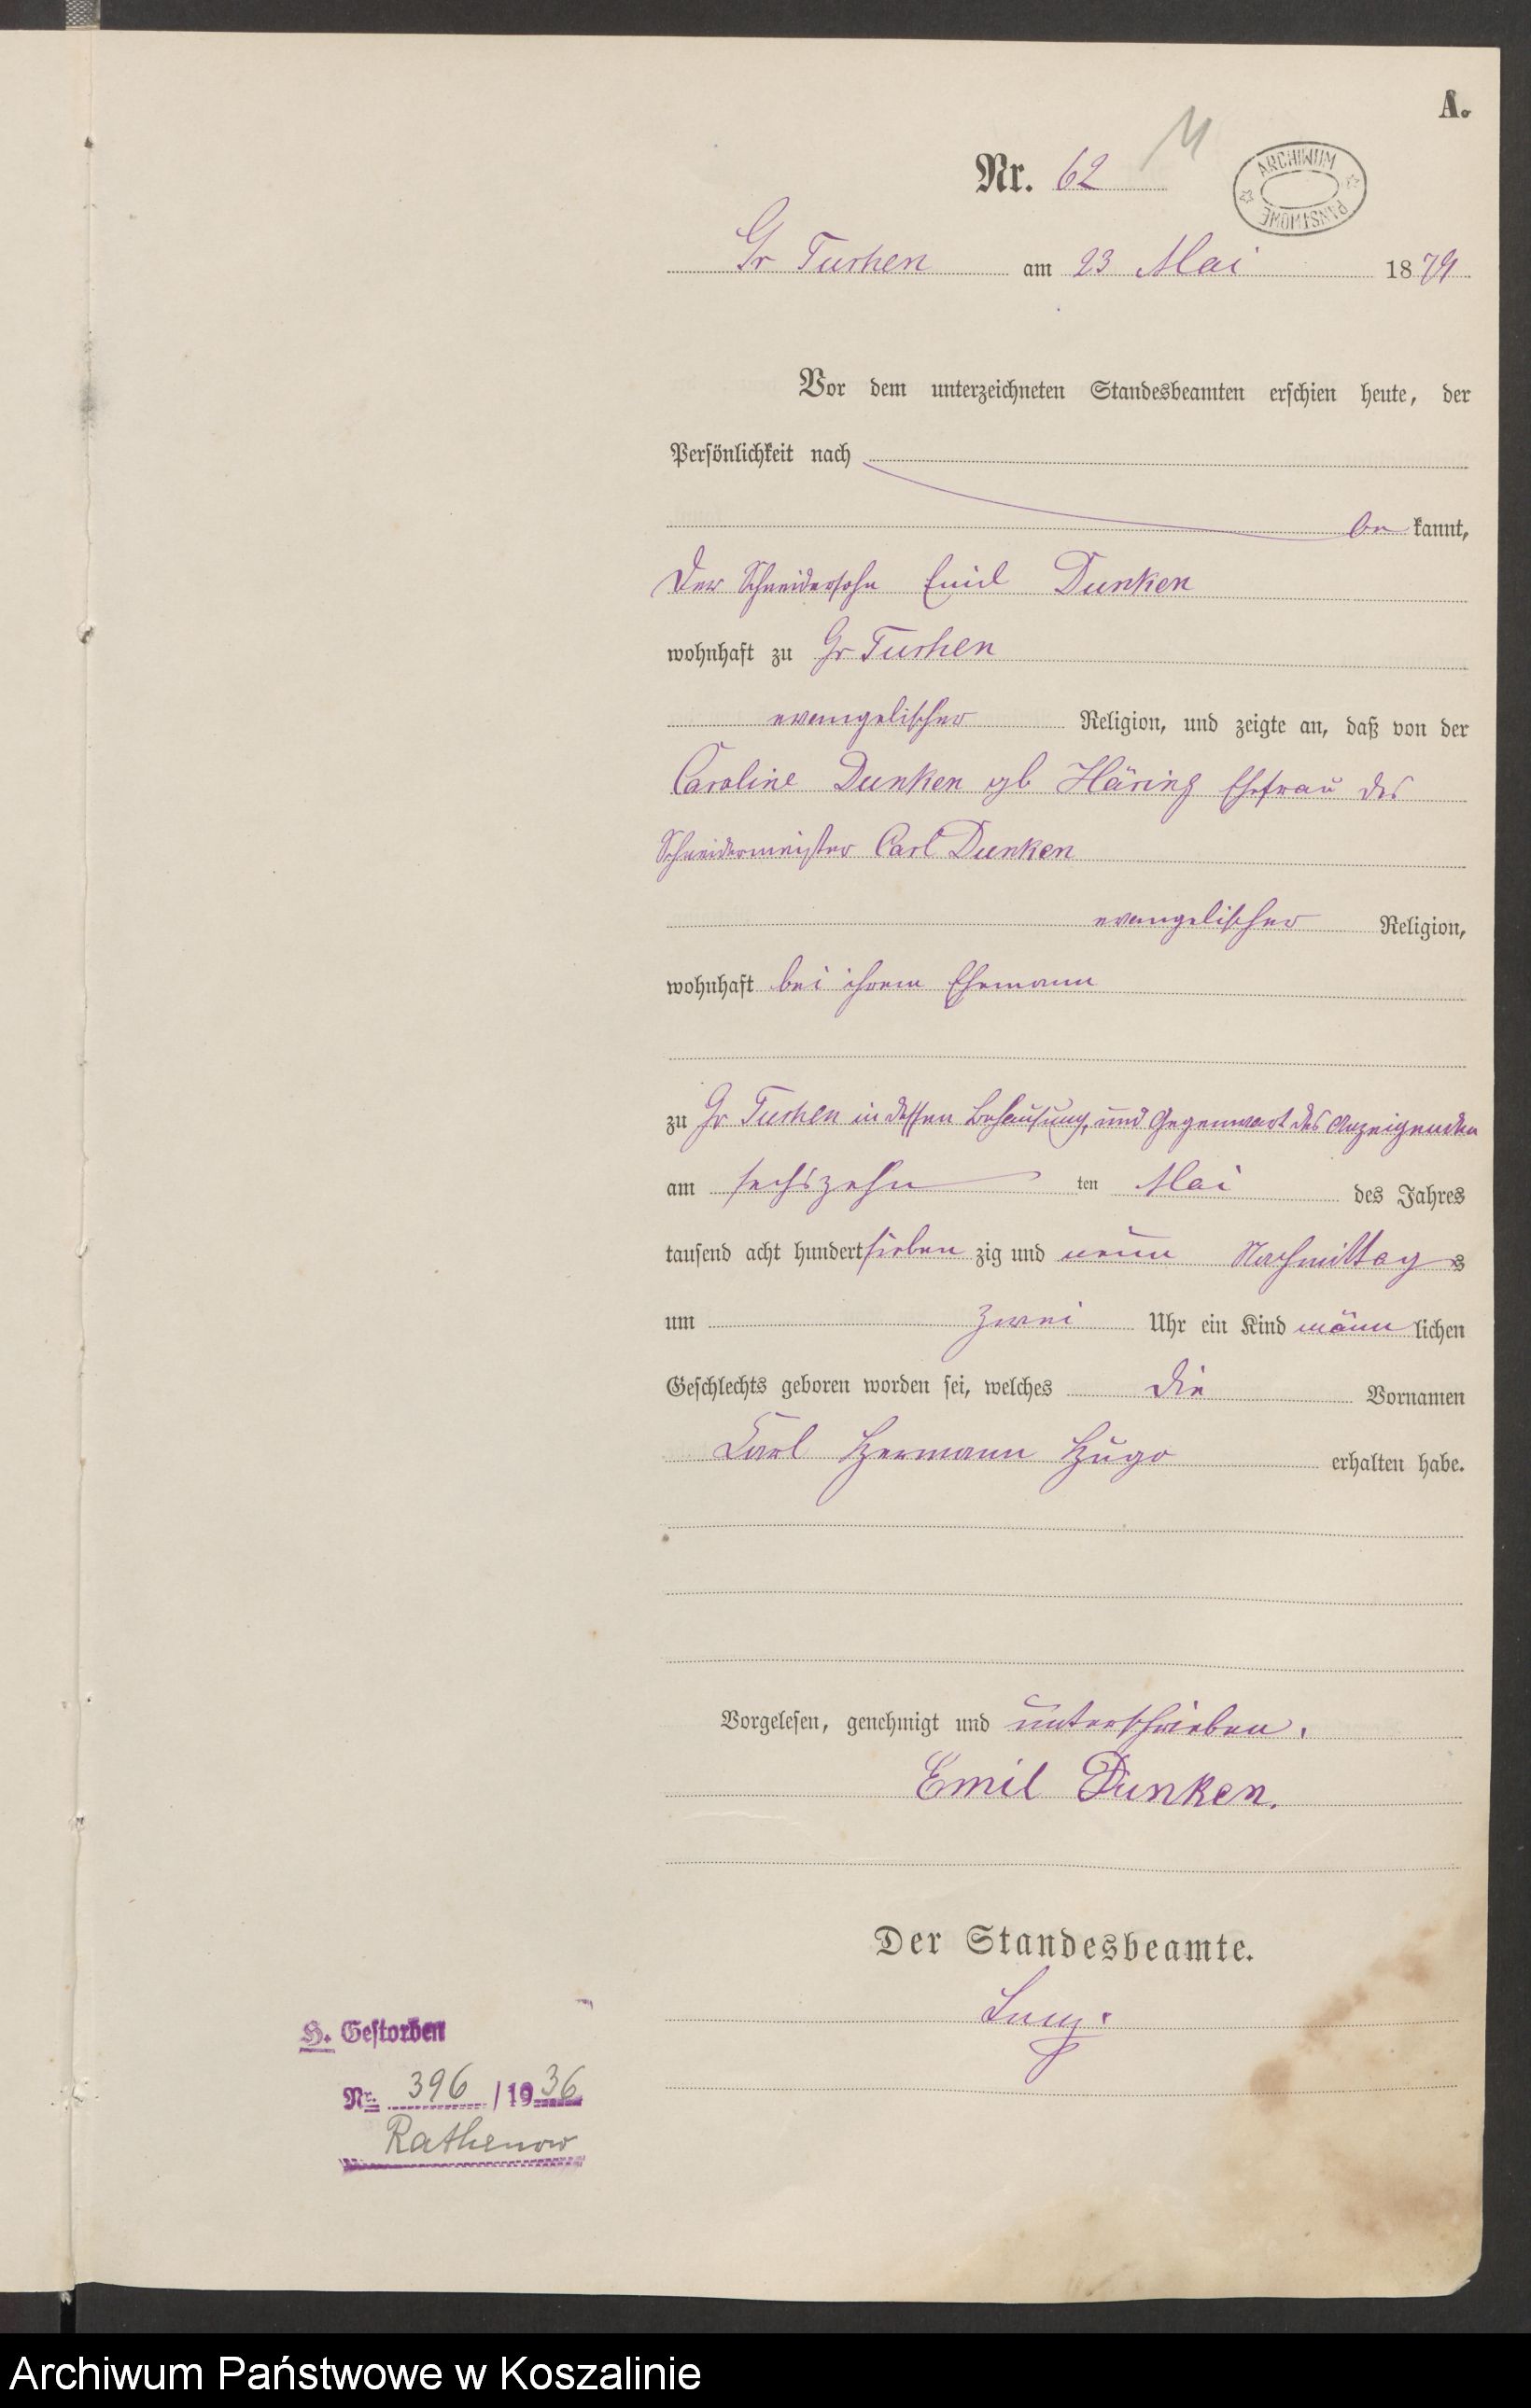 A.
Nr. 62
ARCHIWUM PAŃSTWOWE
Gr Tuchen am 23 Mai 1879
Vor dem unterzeichneten Standesbeamten erschien heute, der
Persönlichkeit nach
be kannt,
Der Schneidersohn Emil Dunken
wohnhaft zu Gr Tuchen
evangelischer Religion, und zeigte an, daß von der
Caroline Dunken gb Häring Ehefrau des
Schneidermeister Carl Dunken
evangelischer Religion,
wohnhaft bei ihrem Ehemann
zu Gr Tuchen in dessen Behausung, und Gegenwart des Anzeigenden
am sechszehn ten Mai des Jahres
tausend acht hundert sieben zig und neun Nachmittags
um zwei Uhr ein Kind männ lichen
Geschlechts geboren worden sei, welches die Vornamen
Carl Hermann Hugo erhalten habe.
Vorgelesen, genehmigt und unterschrieben.
Emil Dunken.
Der Standesbeamte.
H. Gestorben
Nr. 396 / 1936
Rathenow
Archiwum Państwowe w Koszalinie